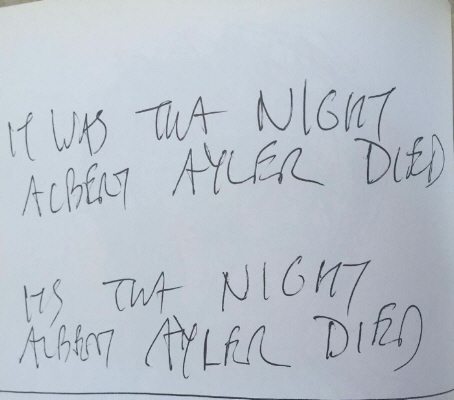 IT WAS THA NIGHT
ALBERT AYLER DIED
ITS THA NIGHT
ALBERT AYLER DIED